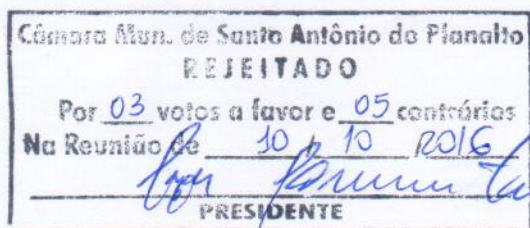 Câmara Mun. de Santo Antônio do Planalto
REJEITADO
Por 03 votos a favor e 05 contrários
Na Reunião de 10 / 10 / 2016
PRESIDENTE